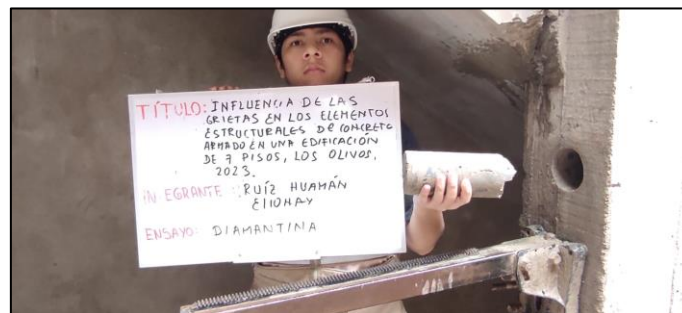 TÍTULO: INFLUENCIA DE LAS
GRIETAS EN LOS ELEMENTOS
ESTRUCTURALES DE CONCRETO
ARMADO EN UNA EDIFICACIÓN
DE 7 PISOS, LOS OLIVOS,
2023.
INTEGRANTE: RUÍZ HUAMÁN
ELIONAY
ENSAYO: DIAMANTINA